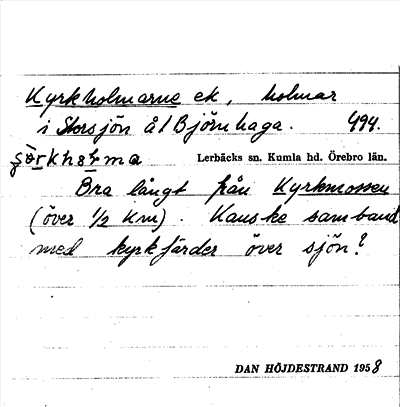 Kyrkholmarne ek, holmar
i Storsjön åt Björnhaga. 494.
Lerbäcks sn. Kumla hd. Örebro län.
Bra långt från Kyrkmossen
(över 1/2 km). Kanske samband
med kyrkfärder över sjön?
DAN HÖJDESTRAND 1958